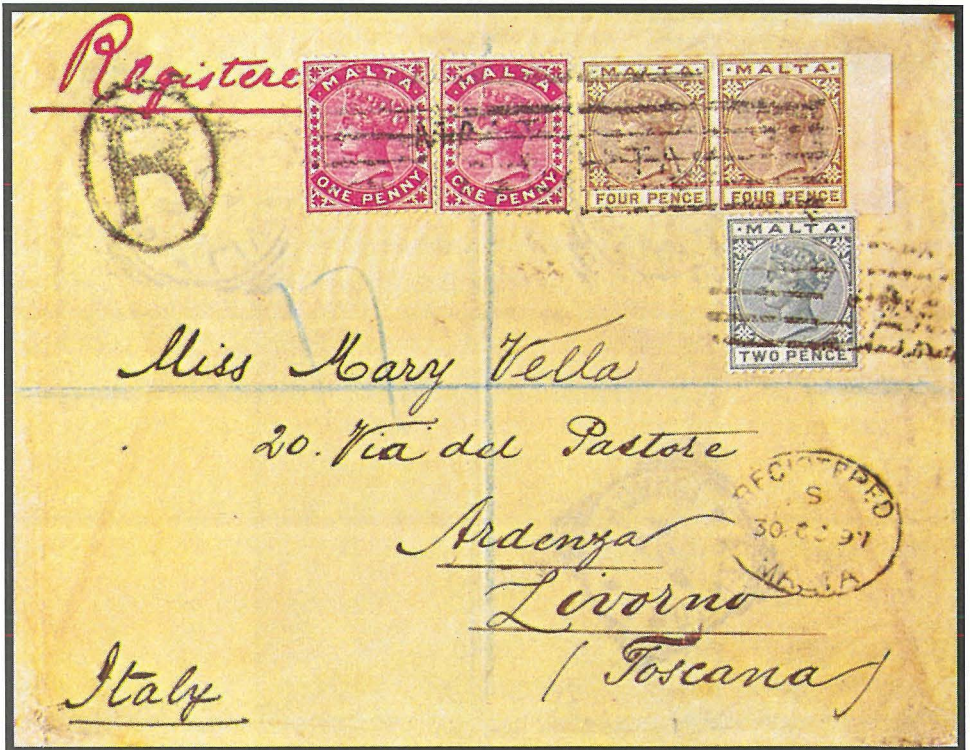 Registere
R
MALTA
ONE PENNY
MALTA
ONE PENNY
MALTA
FOUR PENCE
MALTA
FOUR PENCE
MALTA
TWO PENCE
Miss Mary Vella
20. Via del Pastore
Ardenza
Livorno
(Toscana)
Italy
REGISTERED
S
30 97
MALTA